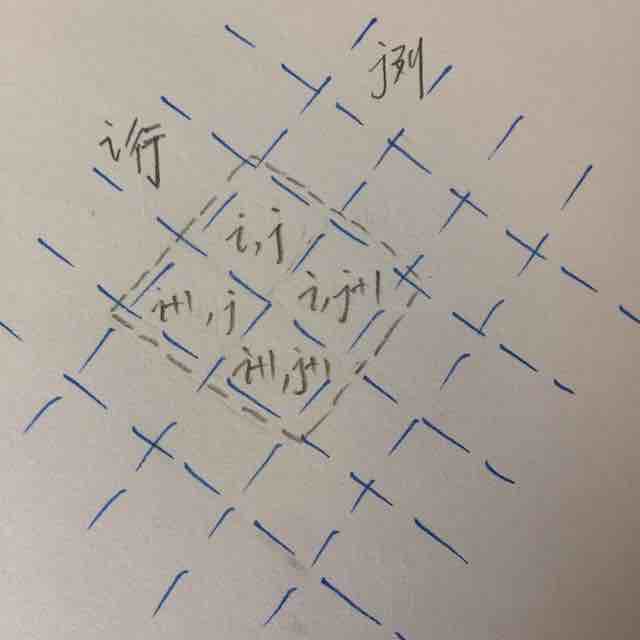 j列
i行
i,j
i+1,j
i,j+1
i+1,j+1